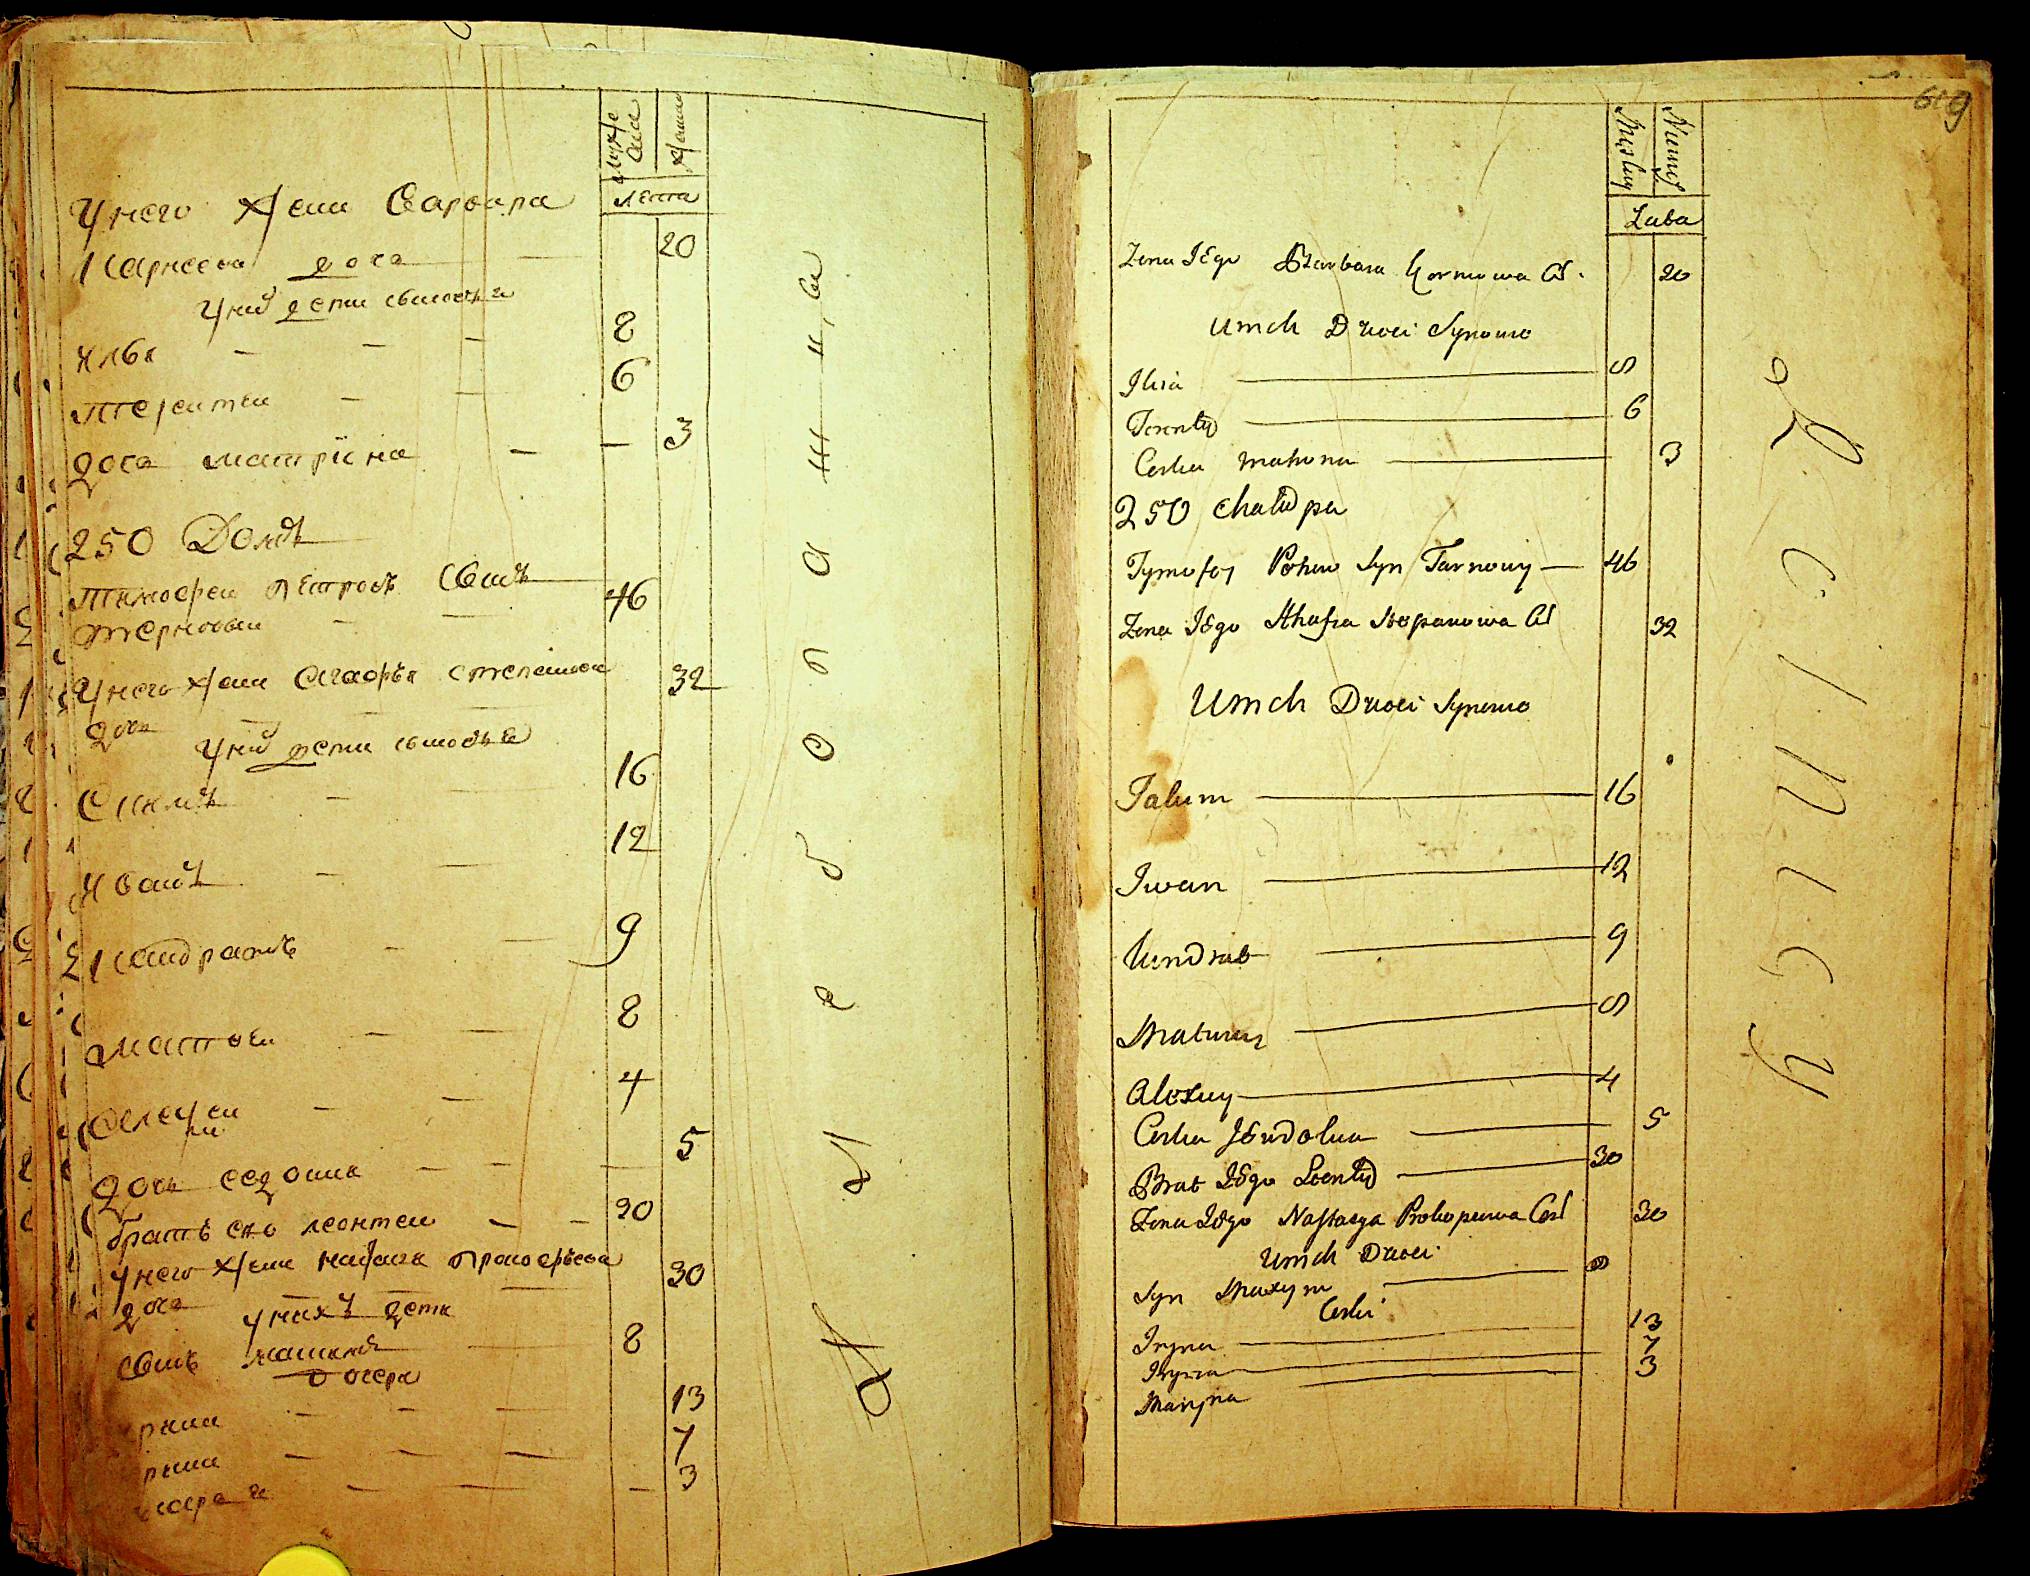 Муже
ска
Женс
Лета
У него жена Варвара
Карнеева доч 20
У них дети сыновья
Илья 8
Терентеи 6
доч Матрiона 3
250 Домъ
Тимофеи Петровъ сынъ 46
Терновыи
У него жена Агафья Степанова 32
доч
У них дети сыновья
Якимъ 16
Иванъ 12
Кондратъ 9
Матвеи 8
Алексеи 4
Дочь Евдокиа 5
братъ его Леонтеи 30
У него жена Настася Прокофьева 30
доч У нихъ дети
сынъ Максимъ 8
дочери
рина 13
рина 7
3
Męskiey
Lata
Zona Iego Barbara Korniowa C. 20
U nich Dzieci Synowie
Ilia 8
Terenty 6
Corka Matrona 3
250 Chalupa
Tymofey Petrow Syn Tarnowy 46
Zona Iego Ahafia Stepanowa C 32
U nich Dzieci Synowie
Iakim 16
Iwan 12
Kondrat 9
Matwiey 8
Alexey 4
Corka Iewdokia 5
Brat Iego Leonty 30
Zona Iego Nastazya Prokopiewa Cor 30
U nich Dzieci
Syn Maxym 8
Corki
Iryna 13
Iryna 7
Maryna 3
619